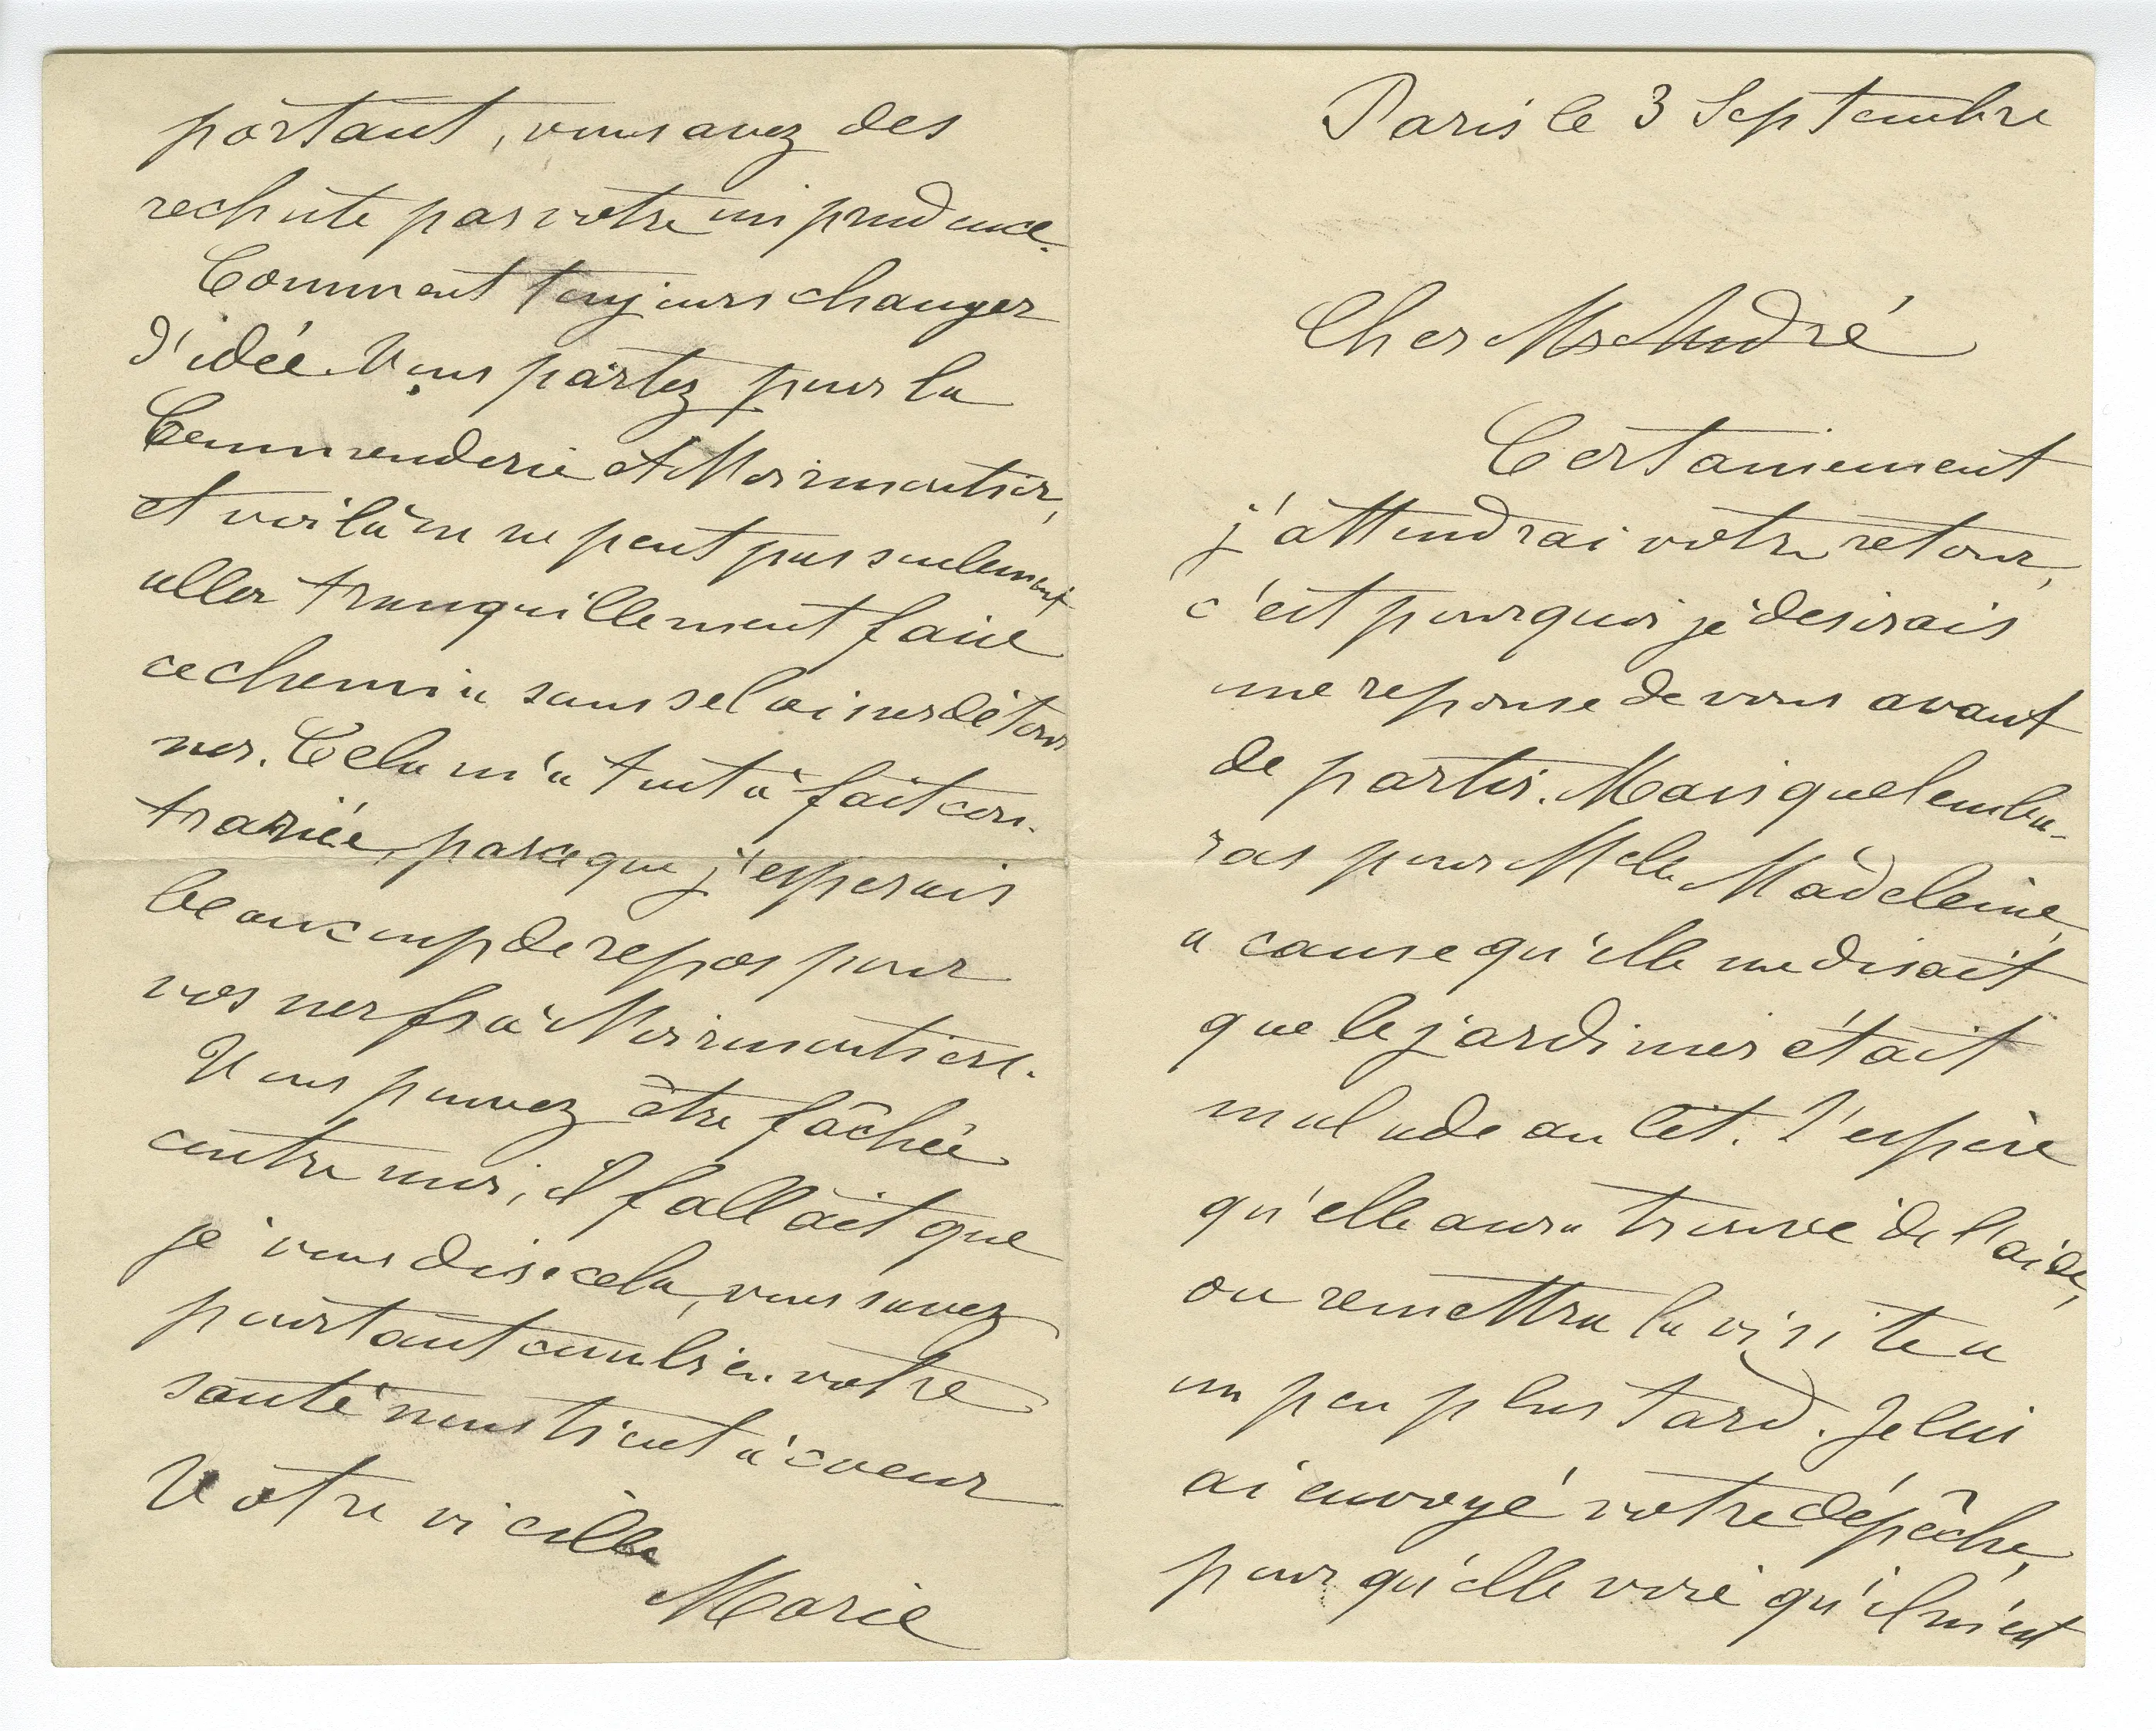 Paris le 3 Septembre
Cher Mr André
Certainement
j'attendrai votre retour,
c'est pourquoi je desirais
une reponse de vous avant
de partir. Mais quel emba-
ras pour Melle Madeleine,
a cause qu'elle me disait
que le jardinier était
malade au lit. J'espère
qu'elle aura trouvé de l'aide,
ou remettra la visite a
un peu plus tard. Je lui
ai envoyé votre dépêche,
pour qu'elle voie qu'il m'est
portant, vous avez des
rechute par votre imprudence.
Comment toujours changer
d'idée. Vous partez pour la
Commenderie et Noirmoutier,
et voilà on ne peut pas seulement
aller tranquillement faire
ce chemin sans se laisser détour
ner. Cela m'a tout à fait con-
trariée, parceque j'esperais
beaucoup de repos pour
vos nerfs à Noirmoutiers.
Vous pouvez être fâchée
contre moi, il fallait que
je vous dise cela, vous savez
pourtant combien votre
santé nous tient à coeur
Votre vieille
Marie